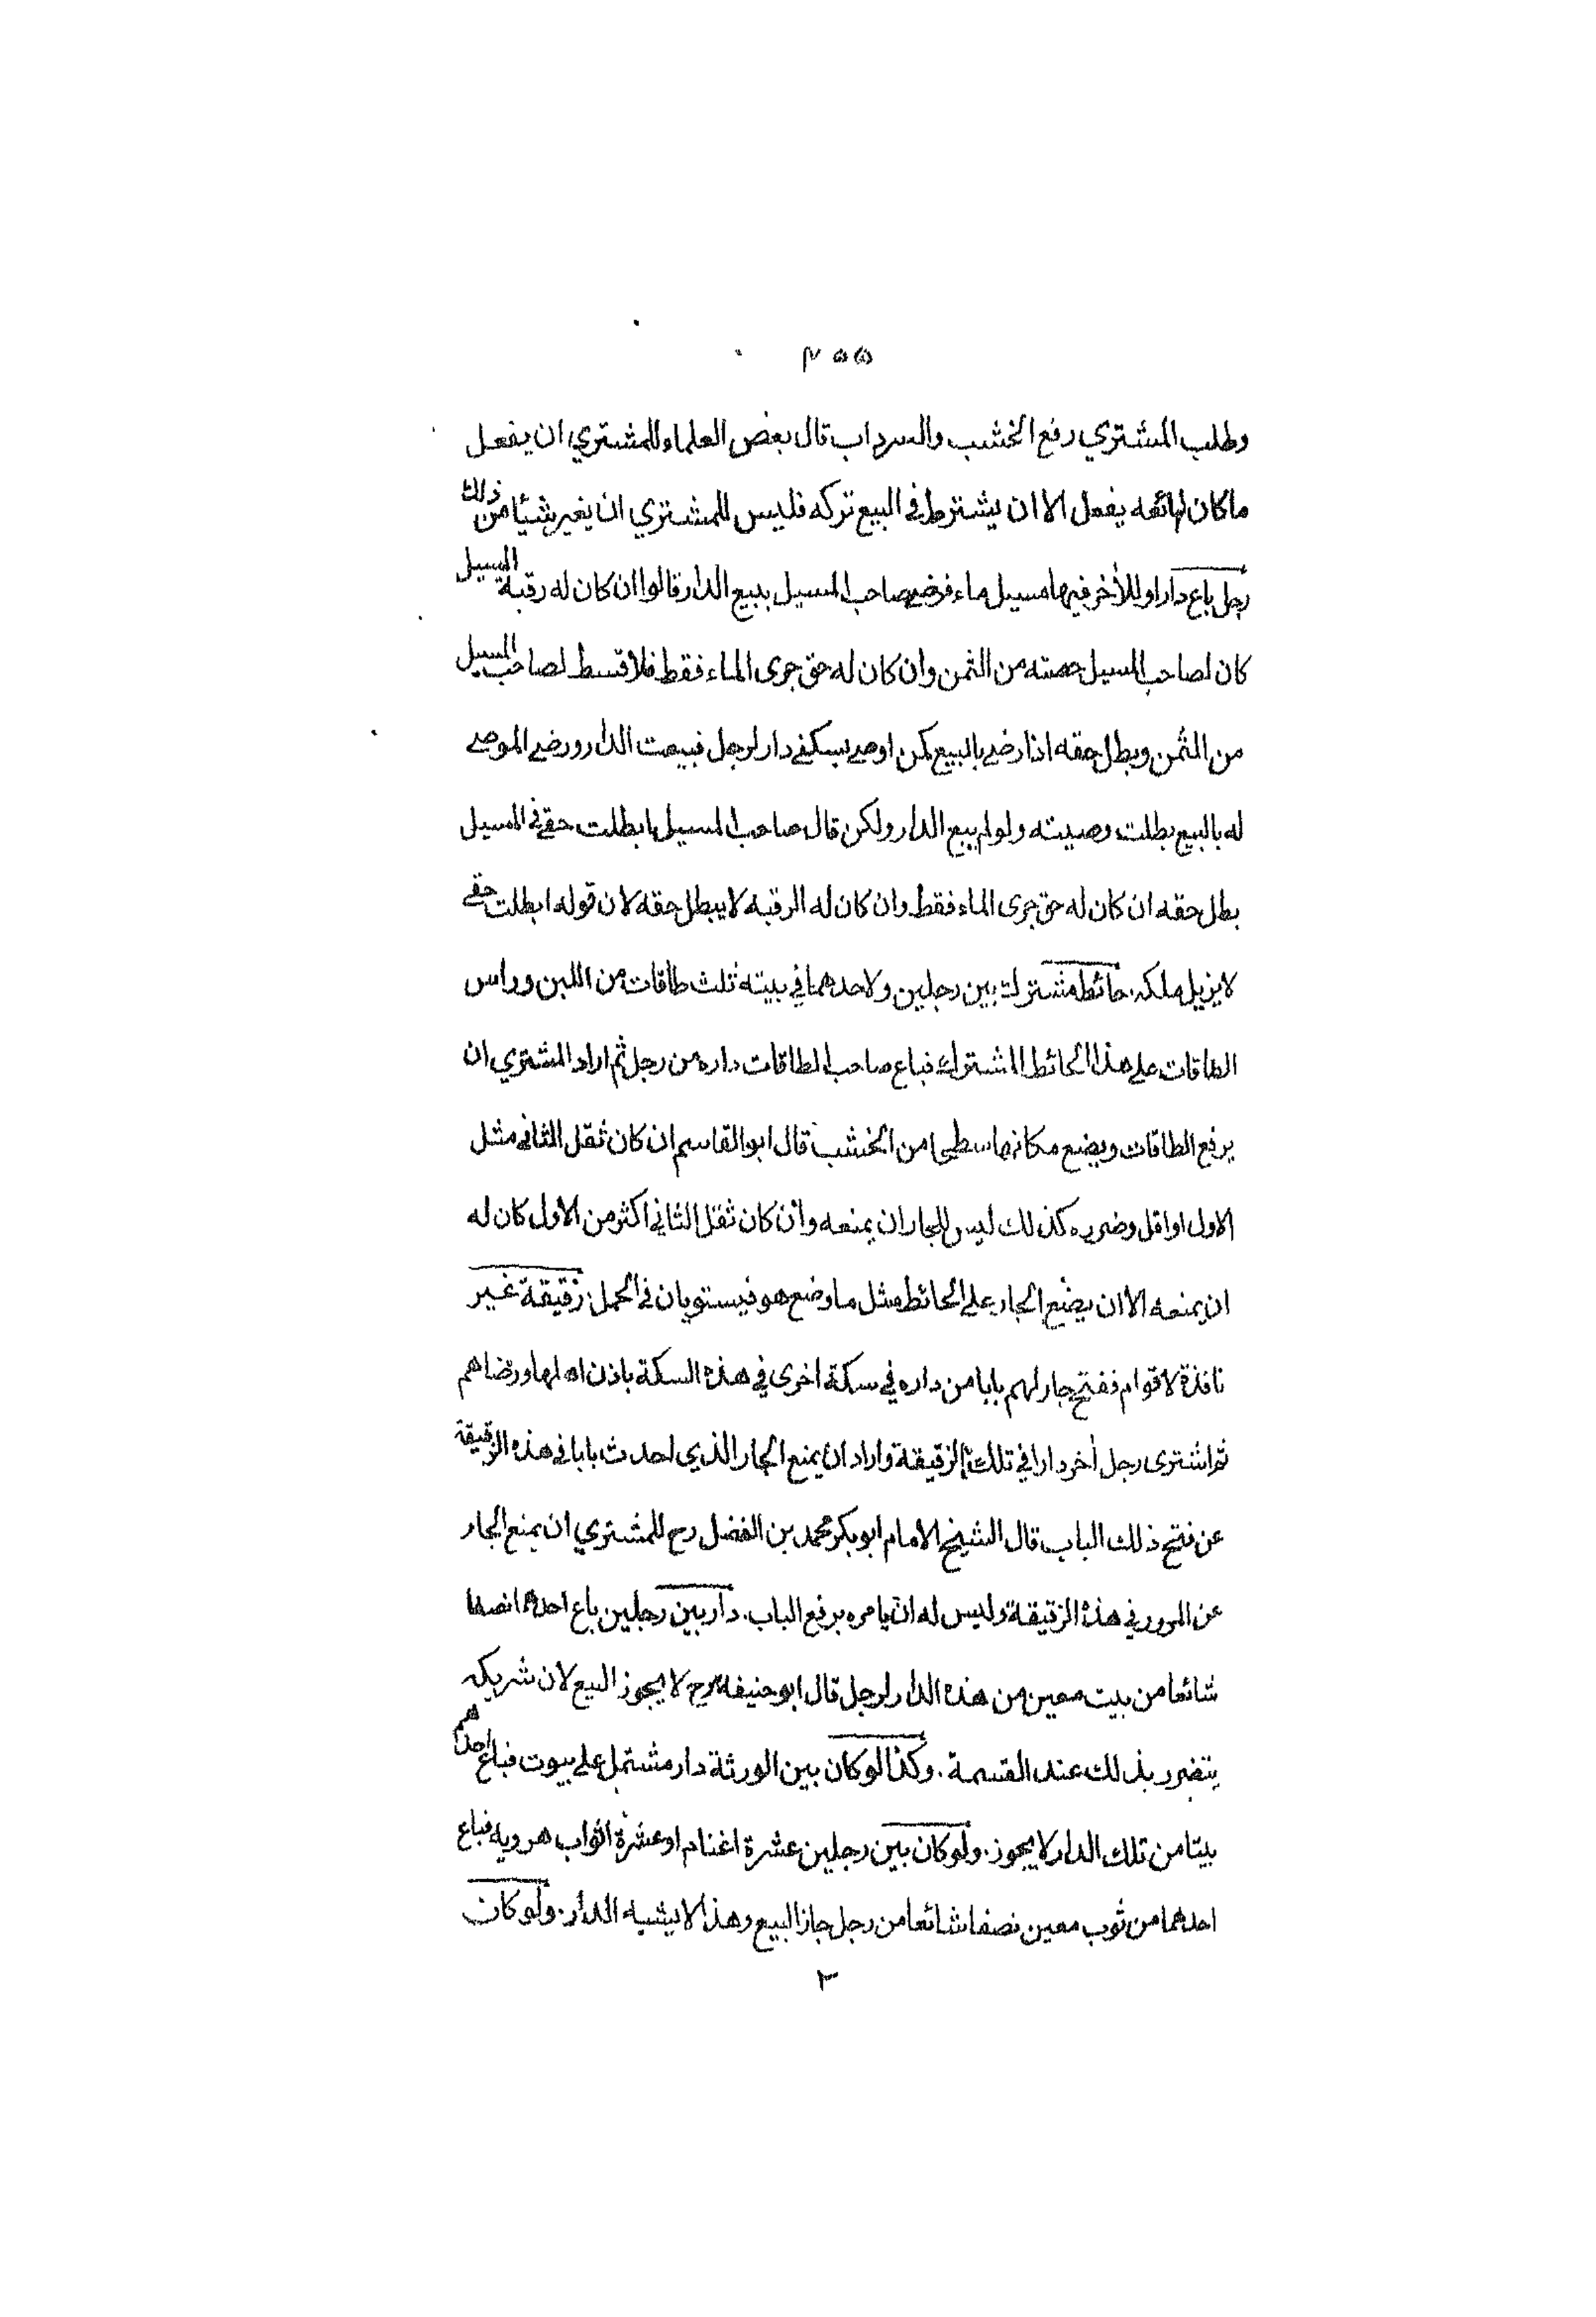 ٢٥٥
وطلب المشتري رفع الخشب والسرداب قال بعض العلماء للمشتري ان يفعل
ما كان لبائعه يفعل الا ان يشترط في البيع تركه فليس للمشتري ان يغير شيئا من ذلك
رجل باع دارا وللأخر فيها مسيل ماء فرضي صاحب المسيل ببيع الدار قالوا ان كان له رقبة المسيل
كان لصاحب المسيل حصته من الثمن وان كان له حق جرى الماء فقط فلا قسط لصاحب المسيل
من الثمن وبطل حقه اذا رضي بالبيع كمن اوصى بسكنى دار لرجل فبيعت الدار ورضي الموصى
له بالبيع بطلت وصيته ولو لم يبع الدار ولكن قال صاحب المسيل ابطلت حقي في المسيل
بطل حقه ان كان له حق جرى الماء فقط وان كان له الرقبة لا يبطل حقه لان قوله ابطلت حقي
لا يزيل ملكه. حائط مشترك بين رجلين ولاحدهما في بيته ثلث طاقات من اللبن وراس
الطاقات على هذا الحائط المشترك فباع صاحب الطاقات داره من رجل ثم اراد المشتري ان
يرفع الطاقات ويضع مكانها سطحا من الخشب قال ابو القاسم ان كان ثقل الثاني مثل
الاول او اقل وضرره كذلك ليس للجار ان يمنعه وان كان ثقل الثاني اكثر من الاول كان له
ان يمنعه الا ان يضع الجار على الحائط مثل ما وضع هو فيستويان في الحمل زقيقة غير
نافذة لاقوام ففتح جار لهم بابا من داره في سكة اخرى في هذه السكة باذن اهلها ورضاهم
ثم اشترى رجل أخر دارا في تلك الزقيقة واراد ان يمنع الجار الذي احدث بابا في هذه الزقيقة
عن فتح ذلك الباب قال الشيخ الامام ابو بكر محمد بن الفضل رح للمشتري ان يمنع الجار
عن المرور في هذه الزقيقة وليس له ان يامره برفع الباب. دار بين رجلين باع احدهما نصفا
شائعا من بيت معين من هذه الدار لرجل قال ابو حنيفه رح لا يجوز البيع لان شريكه
يتضرر بذلك عند القسمة. وكذا لو كان بين الورثة دار مشتمل على بيوت فباع احدهم
بيتا من تلك الدار لا يجوز. ولو كان بين رجلين عشرة اغنام او عشرة اثواب هرويه فباع
احدهما من ثوب معين نصفا شائعا من رجل جاز البيع وهذا لا يشبه الدار. ولو كان
٢